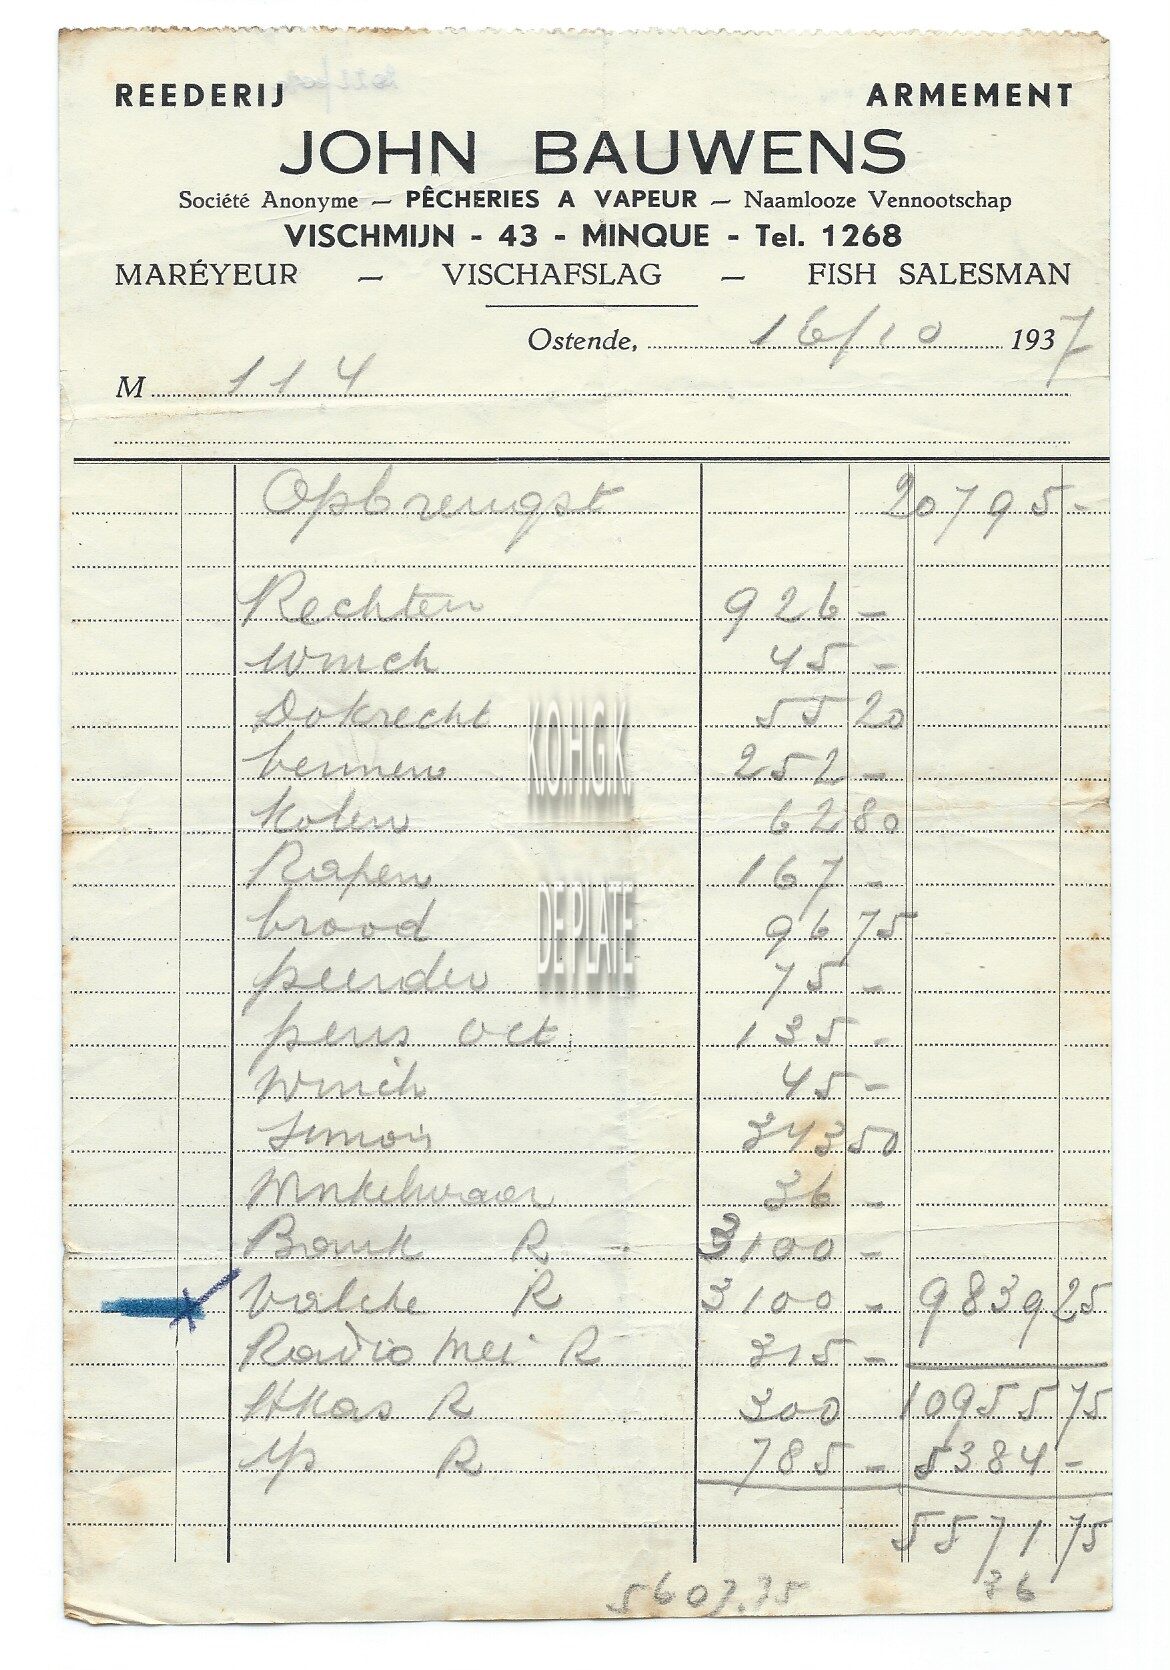 REEDERIJ ARMEMENT
JOHN BAUWENS
Société Anonyme — PÊCHERIES A VAPEUR — Naamlooze Vennootschap
VISCHMIJN - 43 - MINQUE - Tel. 1268
MARÉYEUR — VISCHAFSLAG — FISH SALESMAN
Ostende, 16/10 1937
M 114
Opbrengst 20795-
Rechten 926-
Winch 45-
Dokrecht 55 20
bennen 252-
Kolen 62 80
Rapen 167-
brood 96 75
peerden 75-
pens oct 135-
Winch 45-
Simoin 343 50
Winkelwaar 36-
Bank R 3100-
Valcke R 3100- 9839 25
Radio Mei R 315-
R 300 10955 75
R 785- 5384-
5571 75
5607.75 36
K.O.H.G.K.
DE PLATE